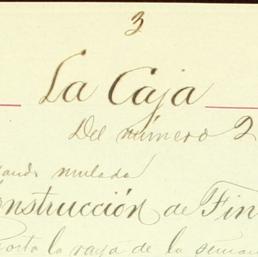 3
La Caja
Del número 2
mulada
onstrucción de Fin
la raya de la semana